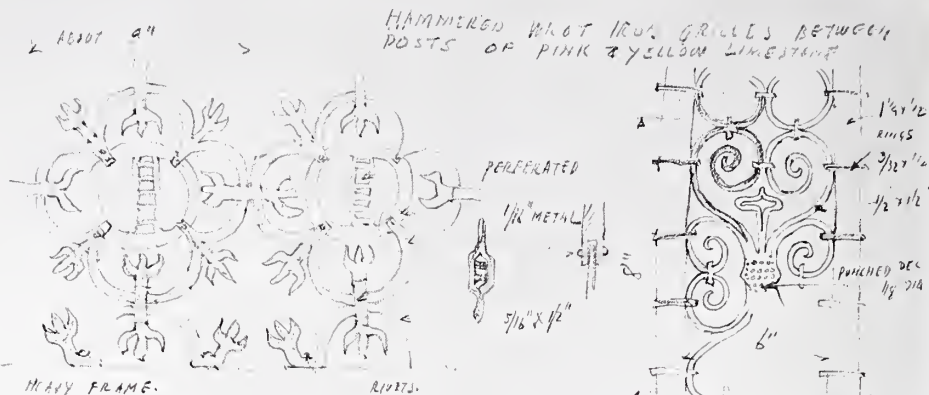 HAMMERED WROT IRON GRILLES BETWEEN
POSTS OF PINK & YELLOW LIMESTONE
ABOUT 9"
PERFERATED
1/16" METAL
5/16" X 1/2"
8"
RINGS
1/2 X 1/2
PUNCHED DEC
1/8 DIA
6"
HEAVY FRAME.
RIVETS.